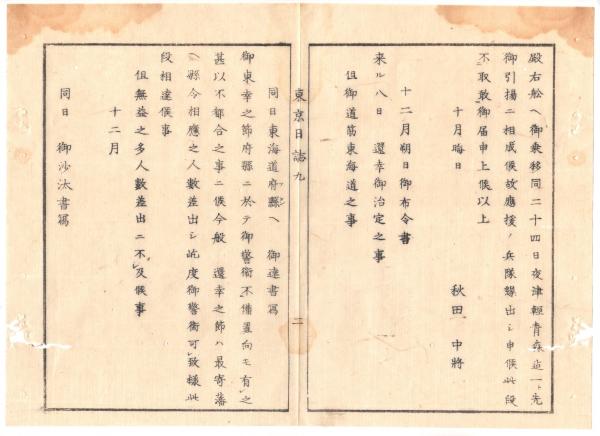 殿右舩ヘ御乗移同二十四日夜津輕青森迠一ト先
御引揚ニ相成候故應援ノ兵隊繰出シ申候此段
不取敢御届申上候以上
十月晦日
秋田中將
十二月朔日御布令書
来ル八日　還幸御治定之事
但御道筋東海道之事
東京日誌九
二
同日東海道府縣ヘ　御達書寫
御東幸之節府縣ニ於テ御警衛不備置向モ有之
甚以不都合之事ニ候今般　還幸之節ハ最寄藩
ヘ縣令相應之人數差出シ屹度御警衛可致様此
段相達候事
但無益之多人數差出ニ不及候事
十二月
同日　御沙汰書寫